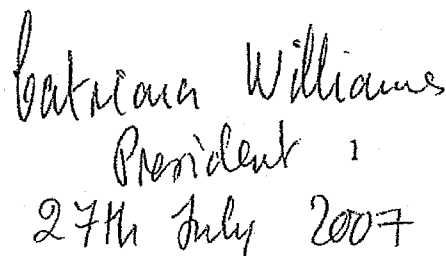 Catriona Williams
President
27th July 2007